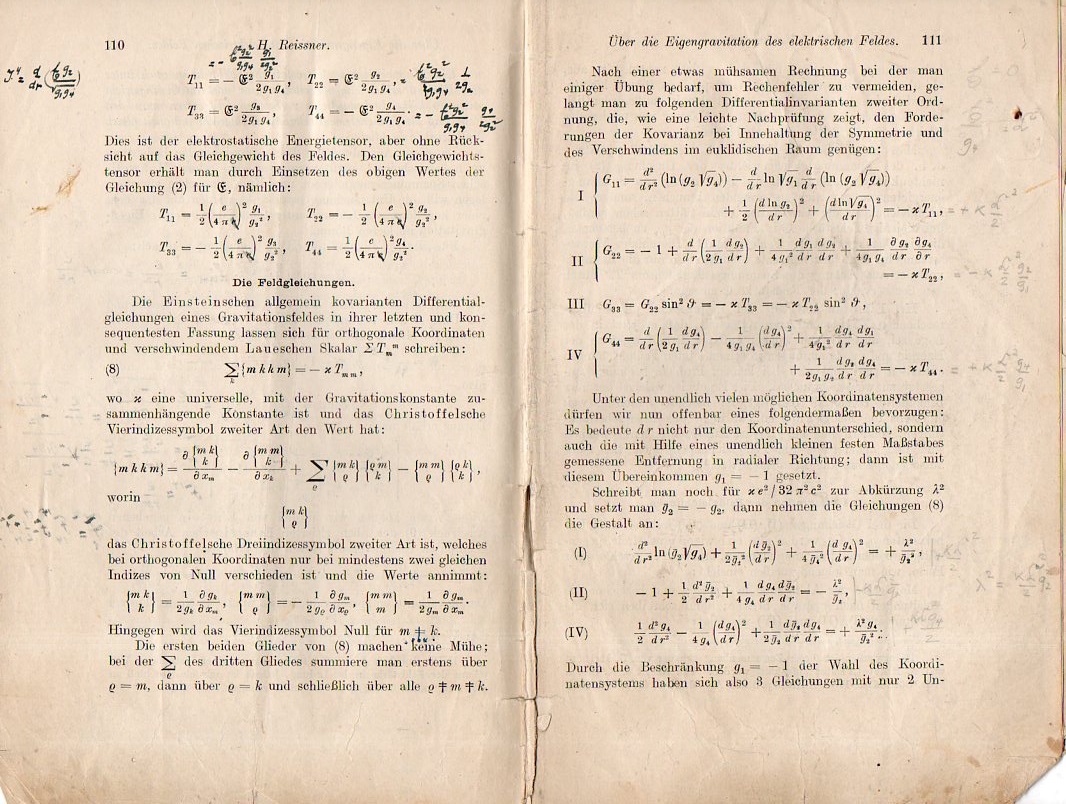 110
H. Reissner.
T₁₁ = − 𝔈² g₁/(2 g₁ g₄), T₂₂ = 𝔈² g₂/(2 g₁ g₄),
T₃₃ = 𝔈² g₃/(2 g₁ g₄), T₄₄ = − 𝔈² g₄/(2 g₁ g₄).
Dies ist der elektrostatische Energietensor, aber ohne Rück-
sicht auf das Gleichgewicht des Feldes. Den Gleichgewichts-
tensor erhält man durch Einsetzen des obigen Wertes der
Gleichung (2) für 𝔈, nämlich:
T₁₁ = 1/2 (e/4π)² g₁/g₂², T₂₂ = − 1/2 (e/4π)² g₂/g₂²,
T₃₃ = − 1/2 (e/4π)² g₃/g₂², T₄₄ = 1/2 (e/4π)² g₄/g₂².
Die Feldgleichungen.
Die Einsteinschen allgemein kovarianten Differential-
gleichungen eines Gravitationsfeldes in ihrer letzten und kon-
sequentesten Fassung lassen sich für orthogonale Koordinaten
und verschwindendem Laueschen Skalar Σ Tₘᵐ schreiben:
(8) ∑ₖ {m k k m} = − ϰ Tₘₘ,
wo ϰ eine universelle, mit der Gravitationskonstante zu-
sammenhängende Konstante ist und das Christoffelsche
Vierindizessymbol zweiter Art den Wert hat:
{m k k m} = ∂{m k / k}/∂xₘ − ∂{m m / k}/∂xₖ + ∑_ϱ {m k / ϱ} {ϱ m / k} − {m m / ϱ} {ϱ k / k},
worin
{m k / ϱ}
das Christoffelsche Dreiindizessymbol zweiter Art ist, welches
bei orthogonalen Koordinaten nur bei mindestens zwei gleichen
Indizes von Null verschieden ist und die Werte annimmt:
{m k / k} = 1/(2gₖ) ∂gₖ/∂xₘ, {m m / ϱ} = − 1/(2g_ϱ) ∂gₘ/∂x_ϱ, {m m / m} = 1/(2gₘ) ∂gₘ/∂xₘ.
Hingegen wird das Vierindizessymbol Null für m ‡ k.
Die ersten beiden Glieder von (8) machen keine Mühe;
bei der ∑_ϱ des dritten Gliedes summiere man erstens über
ϱ = m, dann über ϱ = k und schließlich über alle ϱ ‡ m ‡ k.
Über die Eigengravitation des elektrischen Feldes. 111
Nach einer etwas mühsamen Rechnung bei der man
einiger Übung bedarf, um Rechenfehler zu vermeiden, ge-
langt man zu folgenden Differentialinvarianten zweiter Ord-
nung, die, wie eine leichte Nachprüfung zeigt, den Forde-
rungen der Kovarianz bei Innehaltung der Symmetrie und
des Verschwindens im euklidischen Raum genügen:
I G₁₁ = d²/dr² (ln (g₂ √g₄)) − d/dr ln √g₁ d/dr (ln (g₂ √g₄))
+ 1/2 (d ln g₂/dr)² + (d ln √g₄/dr)² = − ϰ T₁₁,
II G₂₂ = − 1 + d/dr (1/(2g₁) dg₂/dr) + 1/(4g₁²) dg₁/dr dg₂/dr + 1/(4g₁g₄) ∂g₂/dr ∂g₄/∂r
= − ϰ T₂₂,
III G₃₃ = G₂₂ sin² ϑ = − ϰ T₃₃ = − ϰ T₂₂ sin² ϑ,
IV G₄₄ = d/dr (1/(2g₁) dg₄/dr) − 1/(4g₁g₄) (dg₄/dr)² + 1/(4g₁²) dg₄/dr dg₁/dr
+ 1/(2g₁g₂) dg₂/dr dg₄/dr = − ϰ T₄₄.
Unter den unendlich vielen möglichen Koordinatensystemen
dürfen wir nun offenbar eines folgendermaßen bevorzugen:
Es bedeute dr nicht nur den Koordinatenunterschied, sondern
auch die mit Hilfe eines unendlich kleinen festen Maßstabes
gemessene Entfernung in radialer Richtung; dann ist mit
diesem Übereinkommen g₁ = − 1 gesetzt.
Schreibt man noch für ϰ e²/32 π² c² zur Abkürzung λ²
und setzt man ḡ₂ = − g₂, dann nehmen die Gleichungen (8)
die Gestalt an:
(I) d²/dr² ln (ḡ₂ √g₄) + 1/(2ḡ₂²) (dḡ₂/dr)² + 1/(4g₄²) (dg₄/dr)² = + λ²/ḡ₂²,
(II) − 1 + 1/2 d²ḡ₂/dr² + 1/(4g₄) dg₄/dr dḡ₂/dr = − λ²/ḡ₂,
(IV) 1/2 d²g₄/dr² − 1/(4g₄) (dg₄/dr)² + 1/(2ḡ₂) dḡ₂/dr dg₄/dr = + λ²g₄/ḡ₂².
Durch die Beschränkung g₁ = − 1 der Wahl des Koordi-
natensystems haben sich also 3 Gleichungen mit nur 2 Un-